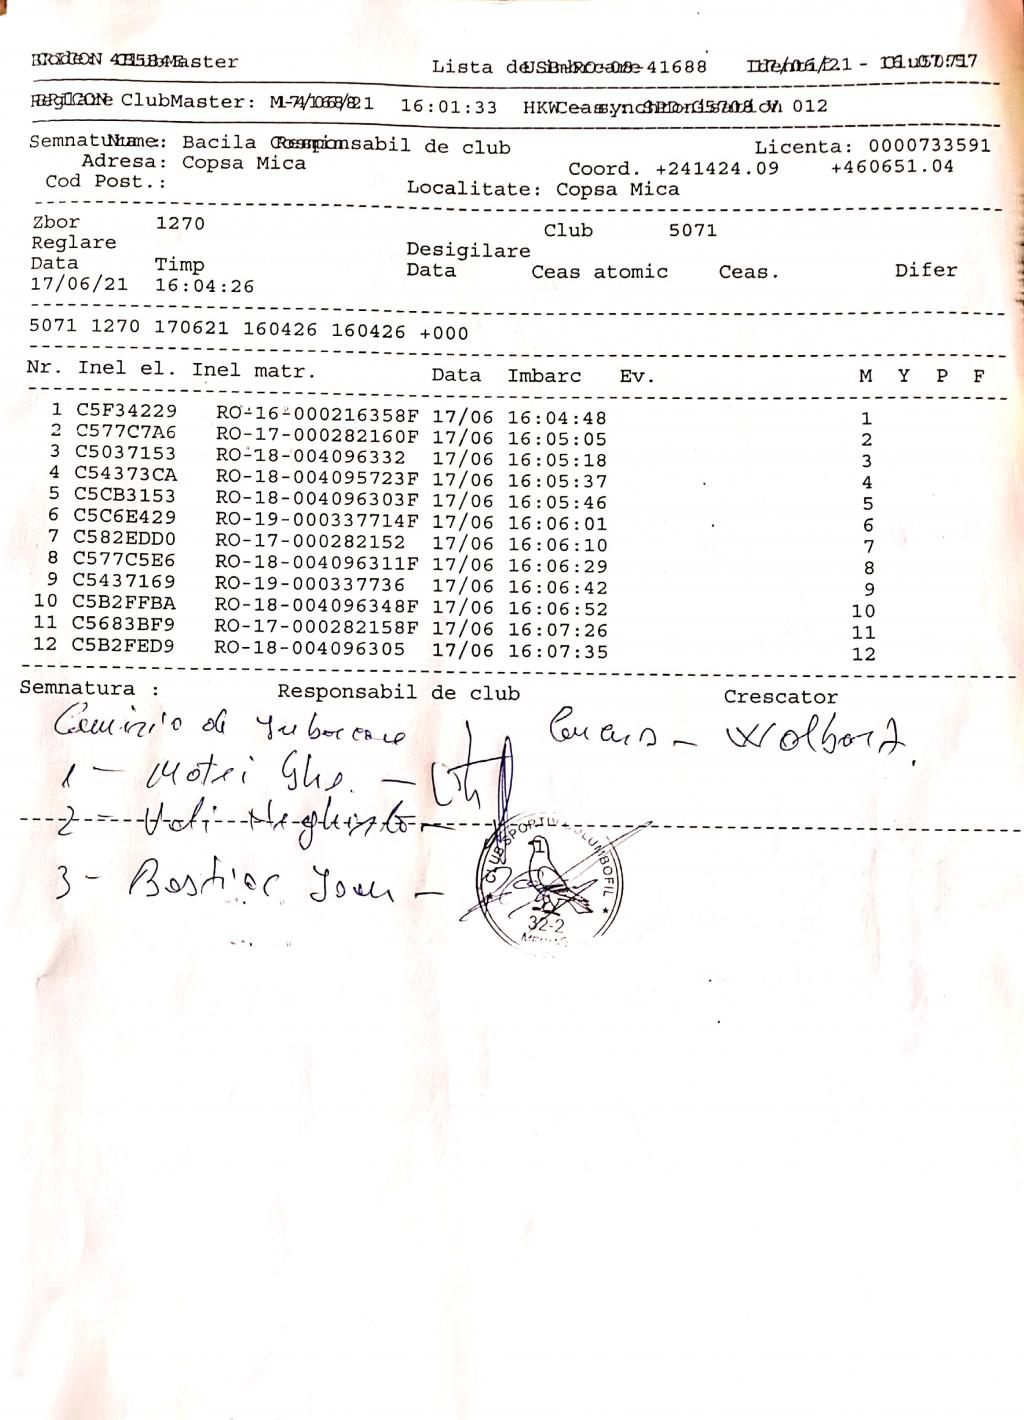 ClubMaster Lista de 41688
ClubMaster: 16:01:33 HKW 012
Nume: Bacila Responsabil de club Licenta: 0000733591
Adresa: Copsa Mica Coord. +241424.09 +460651.04
Cod Post.: Localitate: Copsa Mica
Zbor 1270 Club 5071
Reglare Desigilare
Data Timp Data Ceas atomic Ceas. Difer
17/06/21 16:04:26
5071 1270 170621 160426 160426 +000
Nr. Inel el. Inel matr. Data Imbarc Ev. M Y P F
1 C5F34229 RO-16-000216358F 17/06 16:04:48 1
2 C577C7A6 RO-17-000282160F 17/06 16:05:05 2
3 C5037153 RO-18-004096332 17/06 16:05:18 3
4 C54373CA RO-18-004095723F 17/06 16:05:37 4
5 C5CB3153 RO-18-004096303F 17/06 16:05:46 5
6 C5C6E429 RO-19-000337714F 17/06 16:06:01 6
7 C582EDD0 RO-17-000282152 17/06 16:06:10 7
8 C577C5E6 RO-18-004096311F 17/06 16:06:29 8
9 C5437169 RO-19-000337736 17/06 16:06:42 9
10 C5B2FFBA RO-18-004096348F 17/06 16:06:52 10
11 C5683BF9 RO-17-000282158F 17/06 16:07:26 11
12 C5B2FED9 RO-18-004096305 17/06 16:07:35 12
Semnatura : Responsabil de club Crescator
de
1 - Motei Ghe. -
2 -
3 - Ioan -
CLUB SPORTIV COLUMBOFIL
1
32-2